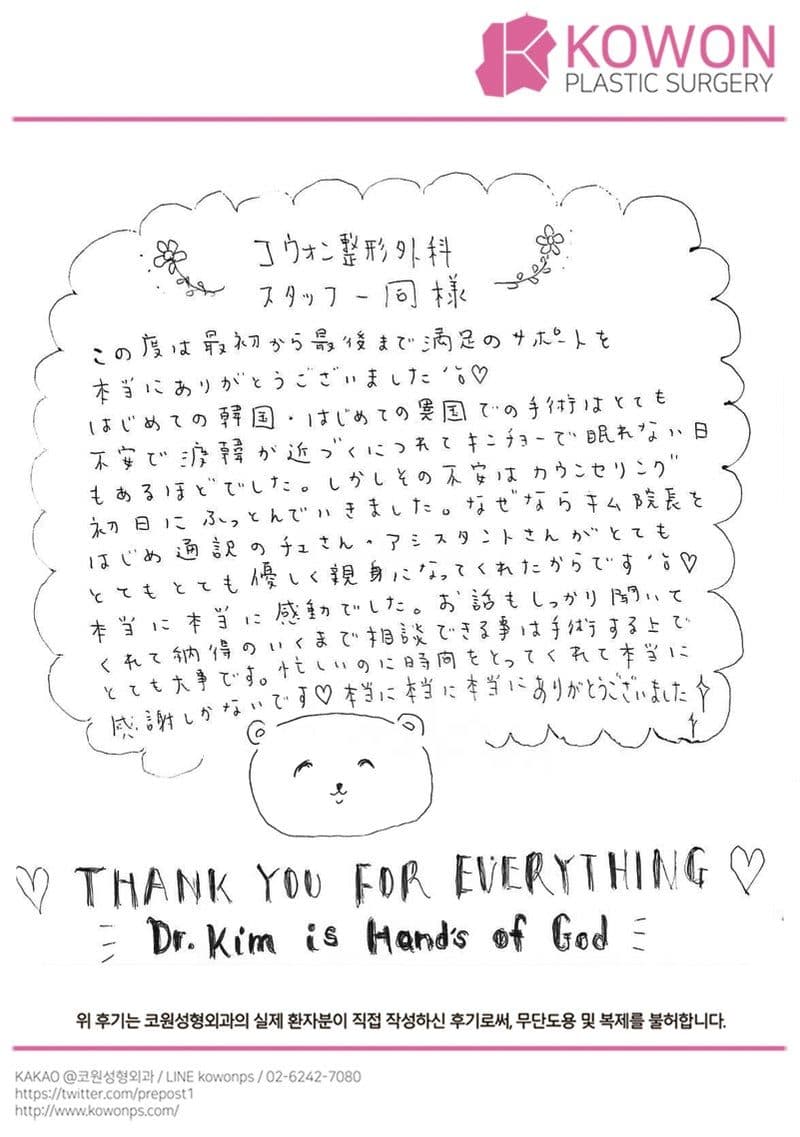 KOWON
PLASTIC SURGERY
コウォン整形外科
スタッフ一同様
この度は最初から最後まで満足のサポートを
本当にありがとうございました♡
はじめての韓国・はじめての異国での手術はとても
不安で渡韓が近づくにつれてキンチョーで眠れない日
もあるほどでした。しかしその不安はカウンセリング
初日にふっとんでいきました。なぜならキム院長を
はじめ通訳のチェさん・アシスタントさんがとても
とてもとても優しく親身になってくれたからです♡
本当に本当に感動でした。お話もしっかり聞いて
くれて納得のいくまで相談できる事は手術する上で
とても大事です。忙しいのに時間をとってくれて本当に
感謝しかないです♡本当に本当に本当にありがとうございました
THANK YOU FOR EVERYTHING
Dr. Kim is Hand's of God
위 후기는 코원성형외과의 실제 환자분이 직접 작성하신 후기로써, 무단도용 및 복제를 불허합니다.
KAKAO @코원성형외과 / LINE kowonps / 02-6242-7080
https://twitter.com/prepost1
http://www.kowonps.com/